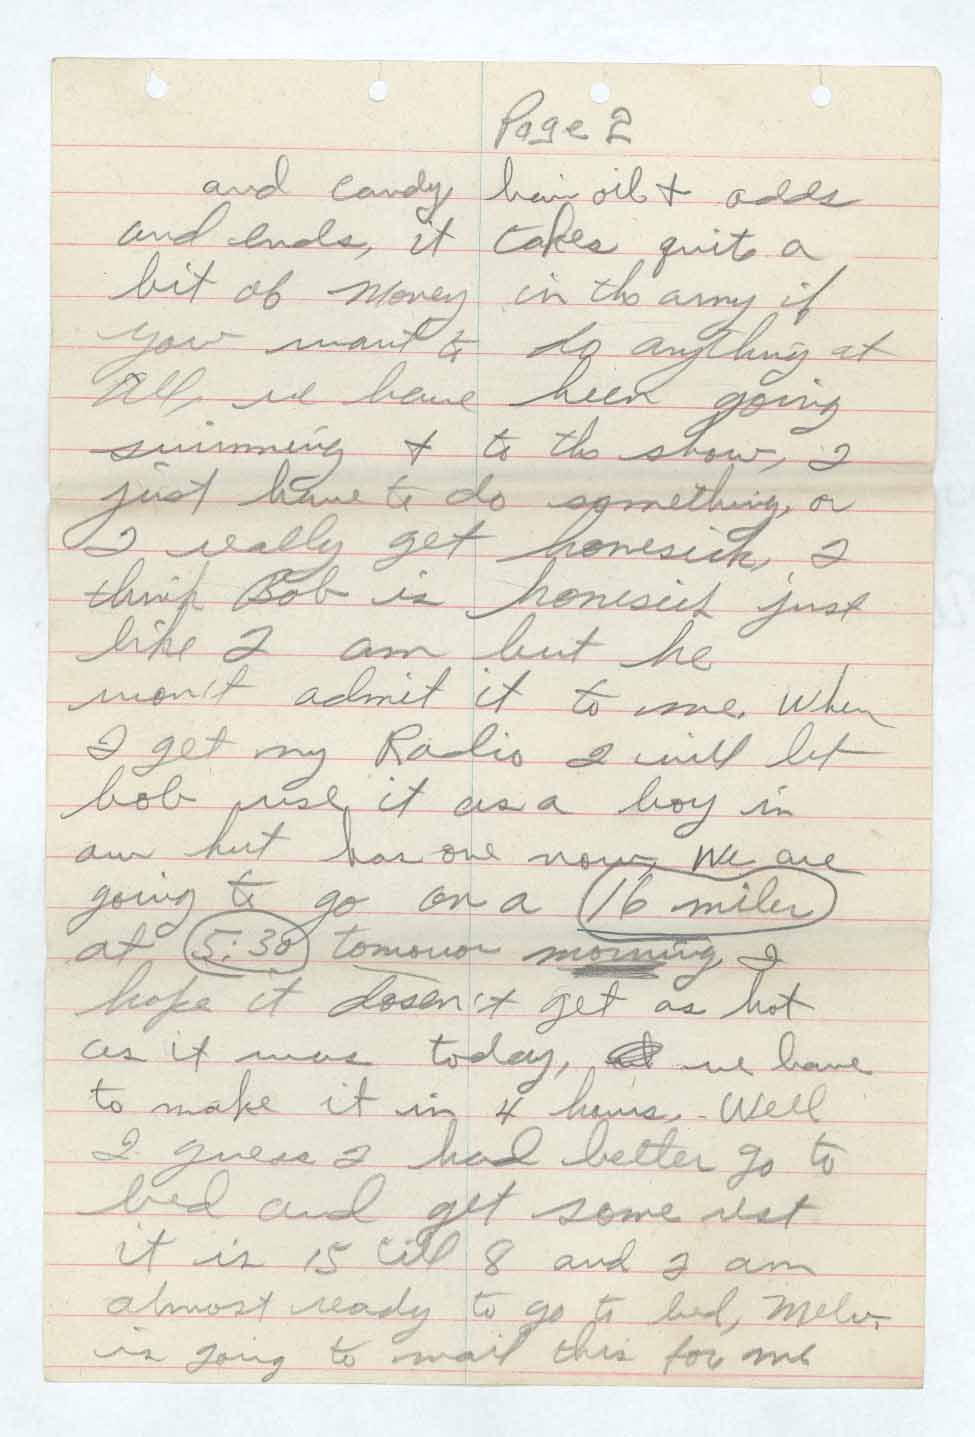 Page 2
and candy, hair oil + odds
and ends, it takes quite a
bit of money in the army if
you want to do anything at
All, we have been going
swimming + to the show, I
just have to do something, or
I really get homesick, I
think Bob is homesick just
like I am but he
won't admit it to me. When
I get my Radio I will let
bob use it as a boy in
our hut has one now, We are
going to go on a 16 miler
at 5:30 tomorror morning, I
hope it dosen't get as hot
as it was today, we have
to make it in 4 hours. - Well
I guess I had better go to
bed and get some rest
it is 15 till 8 and I am
almost ready to go to bed, Melv.
is going to mail this for me